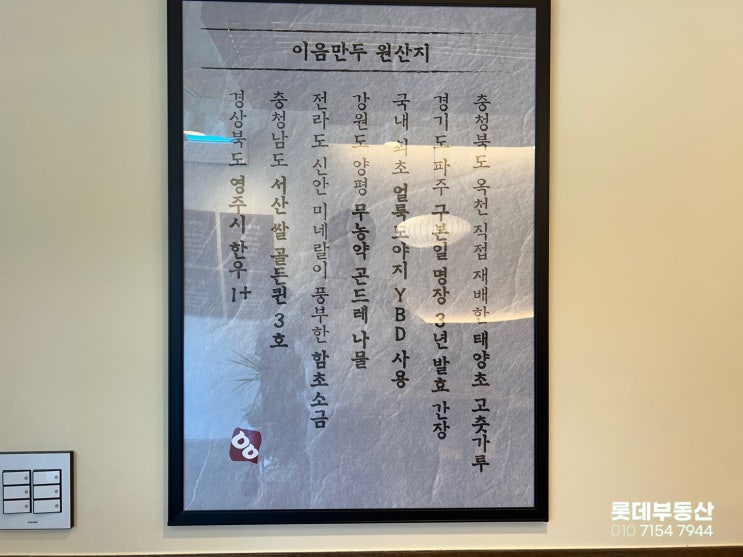 이음만두 원산지
충청북도 옥천 직접 재배한 태양초 고춧가루
경기도 파주 구본일 명장 3년 발효 간장
국내 최초 얼룩도야지 YBD 사용
강원도 양평 무농약 곤드레 나물
전라도 신안 미네랄이 풍부한 함초소금
충청남도 서산쌀 골든퀸 3호
경상북도 영주시 한우 1+
롯데부동산
010 7154 7944